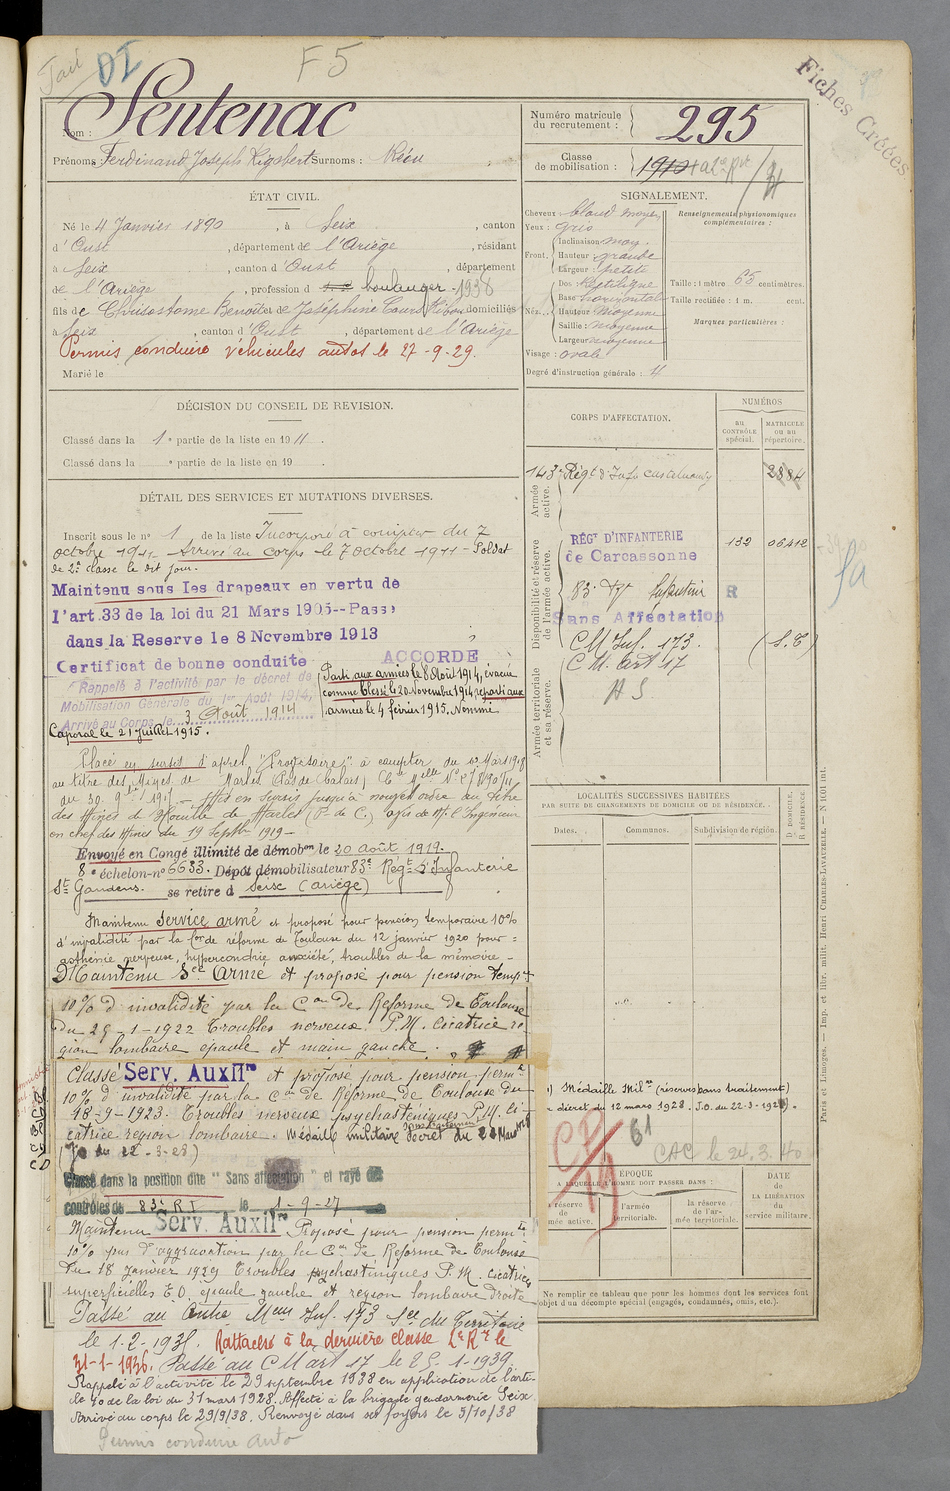 Fait
DI
F5
Fiches Créées
Nom : Sentenac
Prénoms : Ferdinand Joseph Rigobert Surnoms : Néan
Numéro matricule
du recrutement :
295
Classe
de mobilisation :
1910
ÉTAT CIVIL.
Né le 4 Janvier 1890, à Seix, canton
d'Oust, département de l'Ariège, résidant
à Seix, canton d'Oust, département
de l'Ariège, profession d boulanger - 1938
fils de Chrisostome Benoît et de Joséphine domiciliés
à Seix, canton d'Oust, département de l'Ariège
Permis conduire véhicules autos le 27-9-29.
Marié le
SIGNALEMENT.
Cheveux blond moyen
Yeux : gris
Front. Inclinaison moy.
Hauteur grande
Largeur petite
Nez. Dos : Rectiligne
Base horizontale
Hauteur moyenne
Saillie : moyenne
Largeur moyenne
Visage : ovale
Degré d'instruction générale : 4
Renseignements physionomiques
complémentaires :
Taille : 1 mètre 65 centimètres.
Taille rectifiée : 1 m. cent.
Marques particulières :
DÉCISION DU CONSEIL DE REVISION.
Classé dans la 1e partie de la liste en 1911.
Classé dans la e partie de la liste en 19 .
DÉTAIL DES SERVICES ET MUTATIONS DIVERSES.
Inscrit sous le n° 1 de la liste Incorporé à compter du 7
octobre 1911 Arrivé au corps le 7 octobre 1911 - Soldat
de 2e classe le dit jour.
Maintenu sous les drapeaux en vertu de
l'art.33 de la loi du 21 Mars 1905--Passe
dans la Reserve le 8 Novembre 1913
Certificat de bonne conduite ACCORDE
Rappelé à l'activité par le décret de
Mobilisation Générale du 1er Août 1914,
Arrivé au Corps le 3 Août 1914
Parti aux armées le 8 Août 1914, évacué
comme blessé le 20 Novembre 1914 reparti aux
armées le 4 février 1915. Nommé
Caporal le 21 Juillet 1915.
Placé en sursis d'appel "Provisoire" à compter du Mars 1918
au titre des Mines de Marles Pas de Calais
du 30. 9bre 1917 - Mis en sursis jusqu'à nouvel ordre au titre
des Mines d'Houille de Marles (P. de C.) avis de Mr l'Ingénieur
en chef des Mines du 19 Septbre 1919 -
Envoyé en Congé illimité de démobon le 20 Août 1919.
8e échelon - n° 6633. Dépôt démobilisateur 83e Régt d'Infanterie
St Gaudens. se retire à Seix (Ariège)
Maintenu Service armé et proposé pour pension temporaire 10%
d'invalidité par la Con de réforme de Toulouse du 12 janvier 1920 pour :
asthénie nerveuse, hypocondrie anxiété, troubles de la mémoire -
Maintenu Sce Armé et proposé pour pension tempre
10% d'invalidité par la Con de Réforme de Toulouse
du 25-1-1922 Troubles nerveux. P.M. Cicatrice ré
gion lombaire épaule et main gauche.
Classé Serv. Auxilre et proposé pour pension permte
10% d'invalidité par la Con de Réforme de Toulouse du
18-9-1923. Troubles nerveux psychasténiques P.M. Ci
catrice région lombaire. Médaille militaire sans traitement Décret du Mars
(Jo du 22-3-28)
Classé dans la position dite "Sans affectation" et rayé des
contrôles de 83e RI le 1-9-27
Maintenu Serv. Auxilre Proposé pour pension permte
10% pas d'aggravation par la Con de Réforme de Toulouse
du 18 Janvier 1929 Troubles psychasténiques P.M. cicatrices
superficielles E.O. épaule gauche et région lombaire droite
Passé au Centre Mon Inf. 173 Sce du Territoire
le 1-2-193
Rattaché à la dernière classe 2e Rve le
31-1-1936. Passé au C M art 17 le 1-1939.
Rappelé à l'activité le 29 septembre 1938 en application de l'arti-
cle 40 de la loi du 31 mars 1928. Affecté à la brigade gendarmerie Seix
Arrivé au corps le 29/9/38. Renvoyé dans ses foyers le 5/10/38
Permis conduire auto
CORPS D'AFFECTATION.
NUMÉROS
au
CONTRÔLE
spécial.
MATRICULE
ou au
répertoire.
Armée
active.
143e Régt d'Infie Castelnaudary 2884
Disponibilité et réserve
de l'armée active.
RÉGt D'INFANTERIE
de Carcassonne 132 06412
83e Rgt Infanterie R
Sans Affectation
Armée territoriale
et sa réserve.
C M Inf. 173 (S.T)
C M. Art 17
LOCALITÉS SUCCESSIVES HABITÉES
PAR SUITE DE CHANGEMENTS DE DOMICILE OU DE RÉSIDENCE.
Dates. Communes. Subdivision de région.
D DOMICILE.
R RÉSIDENCE
Médaille Milre (réserves sans traitement)
décret du 12 mars 1928. J.O. du 22-3-1928.
61
CAC le 24.3.40
ÉPOQUE
A LAQUELLE L'HOMME DOIT PASSER DANS :
réserve
de
armée active.
l'armée
territoriale.
la réserve
de l'ar-
mée territoriale.
DATE
de
LA LIBÉRATION
du
service militaire.
Ne remplir ce tableau que pour les hommes dont les services font
objet d'un décompte spécial (engagés, condamnés, omis, etc.).
Paris et Limoges. — Imp. et libr. milit. Henri CHARLES-LAVAUZELLE.